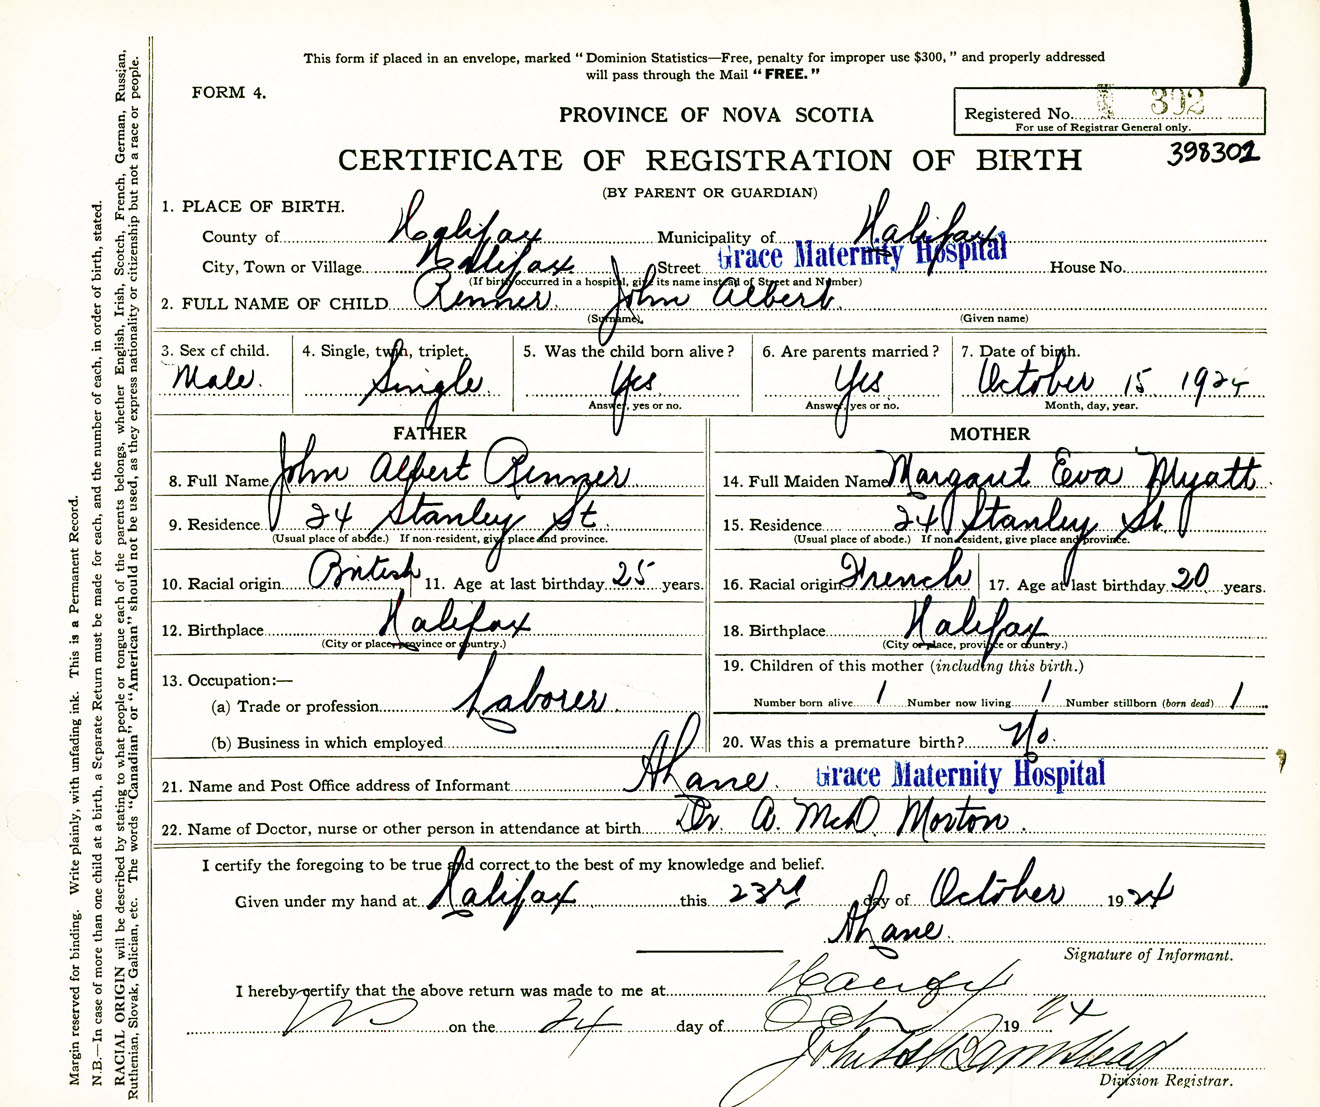 This form if placed in an envelope, marked "Dominion Statistics—Free, penalty for improper use $300," and properly addressed
will pass through the Mail "FREE."
FORM 4.
PROVINCE OF NOVA SCOTIA
Registered No. 392
For use of Registrar General only.
CERTIFICATE OF REGISTRATION OF BIRTH
398302
(BY PARENT OR GUARDIAN)
1. PLACE OF BIRTH.
County of Halifax Municipality of Halifax
City, Town or Village Halifax Street Grace Maternity Hospital House No.
(If birth occurred in a hospital, give its name instead of Street and Number)
2. FULL NAME OF CHILD Renner John Albert
(Surname) (Given name)
3. Sex of child. 4. Single, twin, triplet. 5. Was the child born alive? 6. Are parents married? 7. Date of birth.
Male. Single. Yes Yes October 15 1924
Answer, yes or no. Answer, yes or no. Month, day, year.
FATHER
8. Full Name John Albert Renner
9. Residence 24 Stanley St.
(Usual place of abode.) If non-resident, give place and province.
10. Racial origin British 11. Age at last birthday 25 years.
12. Birthplace Halifax
(City or place, province or country.)
13. Occupation:—
(a) Trade or profession Laborer.
(b) Business in which employed
MOTHER
14. Full Maiden Name Margaret Eva Myatt.
15. Residence 24 Stanley St.
(Usual place of abode.) If non-resident, give place and province.
16. Racial origin French 17. Age at last birthday 20 years.
18. Birthplace Halifax
(City or place, province or country.)
19. Children of this mother (including this birth.)
Number born alive 1 Number now living 1 Number stillborn (born dead) 1
20. Was this a premature birth? No.
21. Name and Post Office address of Informant Grace Maternity Hospital
22. Name of Doctor, nurse or other person in attendance at birth Dr. A. McD. Morton.
I certify the foregoing to be true and correct to the best of my knowledge and belief.
Given under my hand at Halifax this 23rd day of October 1924
Signature of Informant.
I hereby certify that the above return was made to me at Halifax
on the 24 day of Oct 1924
Division Registrar.
Margin reserved for binding. Write plainly, with unfading ink. This is a Permanent Record.
N.B.—In case of more than one child at a birth, a Separate Return must be made for each, and the number of each, in order of birth, stated.
RACIAL ORIGIN will be described by stating to what people or tongue each of the parents belongs, whether English, Irish, Scotch, French, German, Russian,
Ruthenian, Slovak, Galician, etc. The words "Canadian" or "American" should not be used, as they express nationality or citizenship but not a race or people.